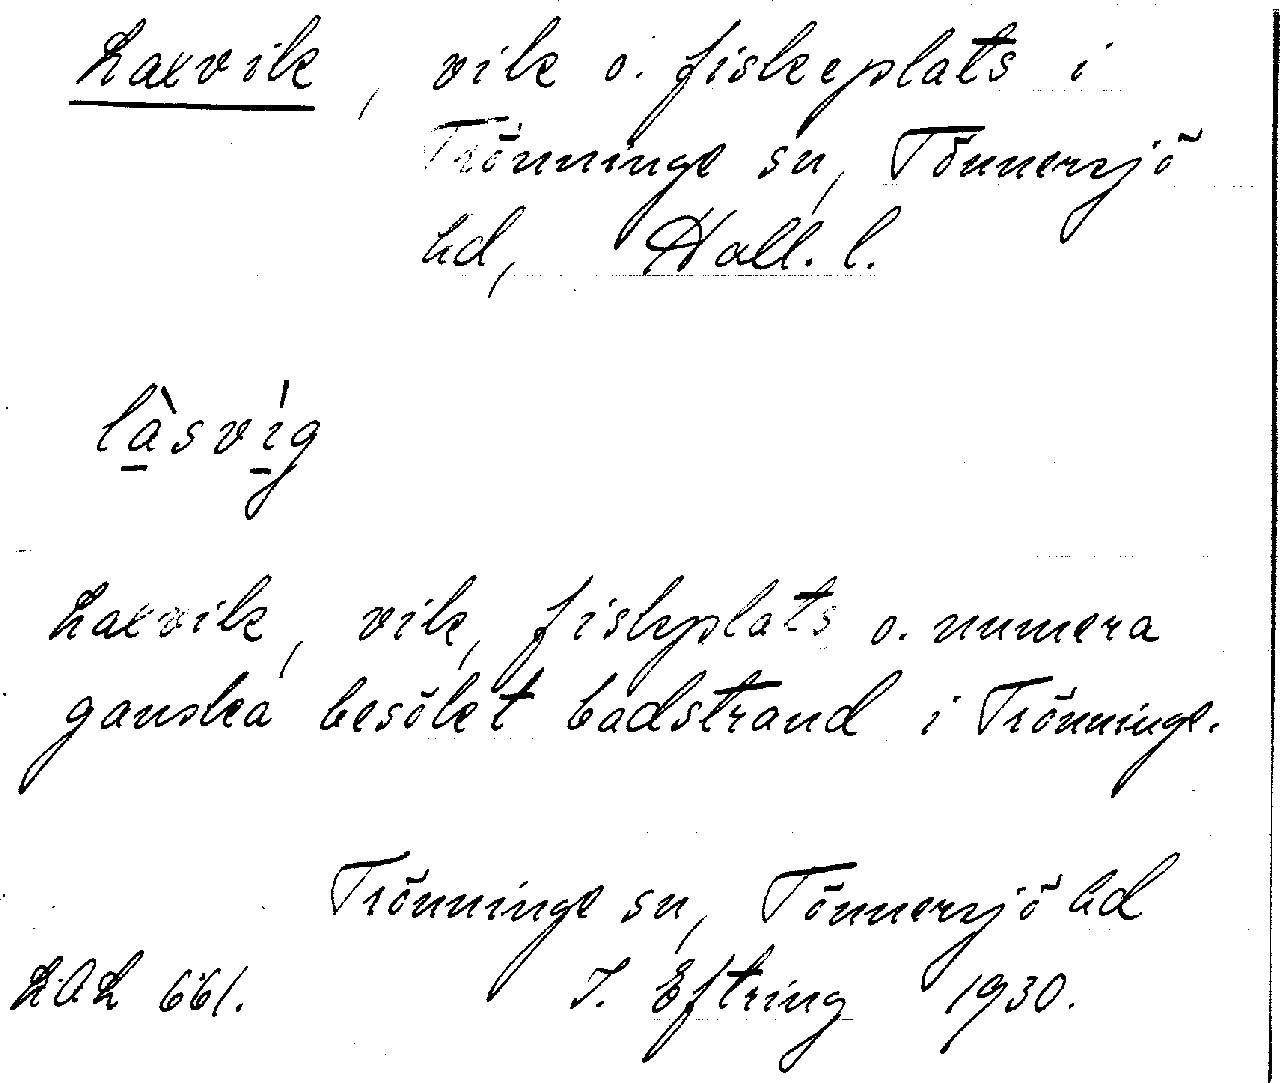 Laxvik, vik o. fiskeplats i
Trönninge sn, Tönnersjö
hd, Hall. l.
làsvíg
Laxvik, vik, fiskplats o. numera
ganska besökt badstrand i Trönninge.
Trönninge sn, Tönnersjö hd
LAL 661. J. Eftring 1930.